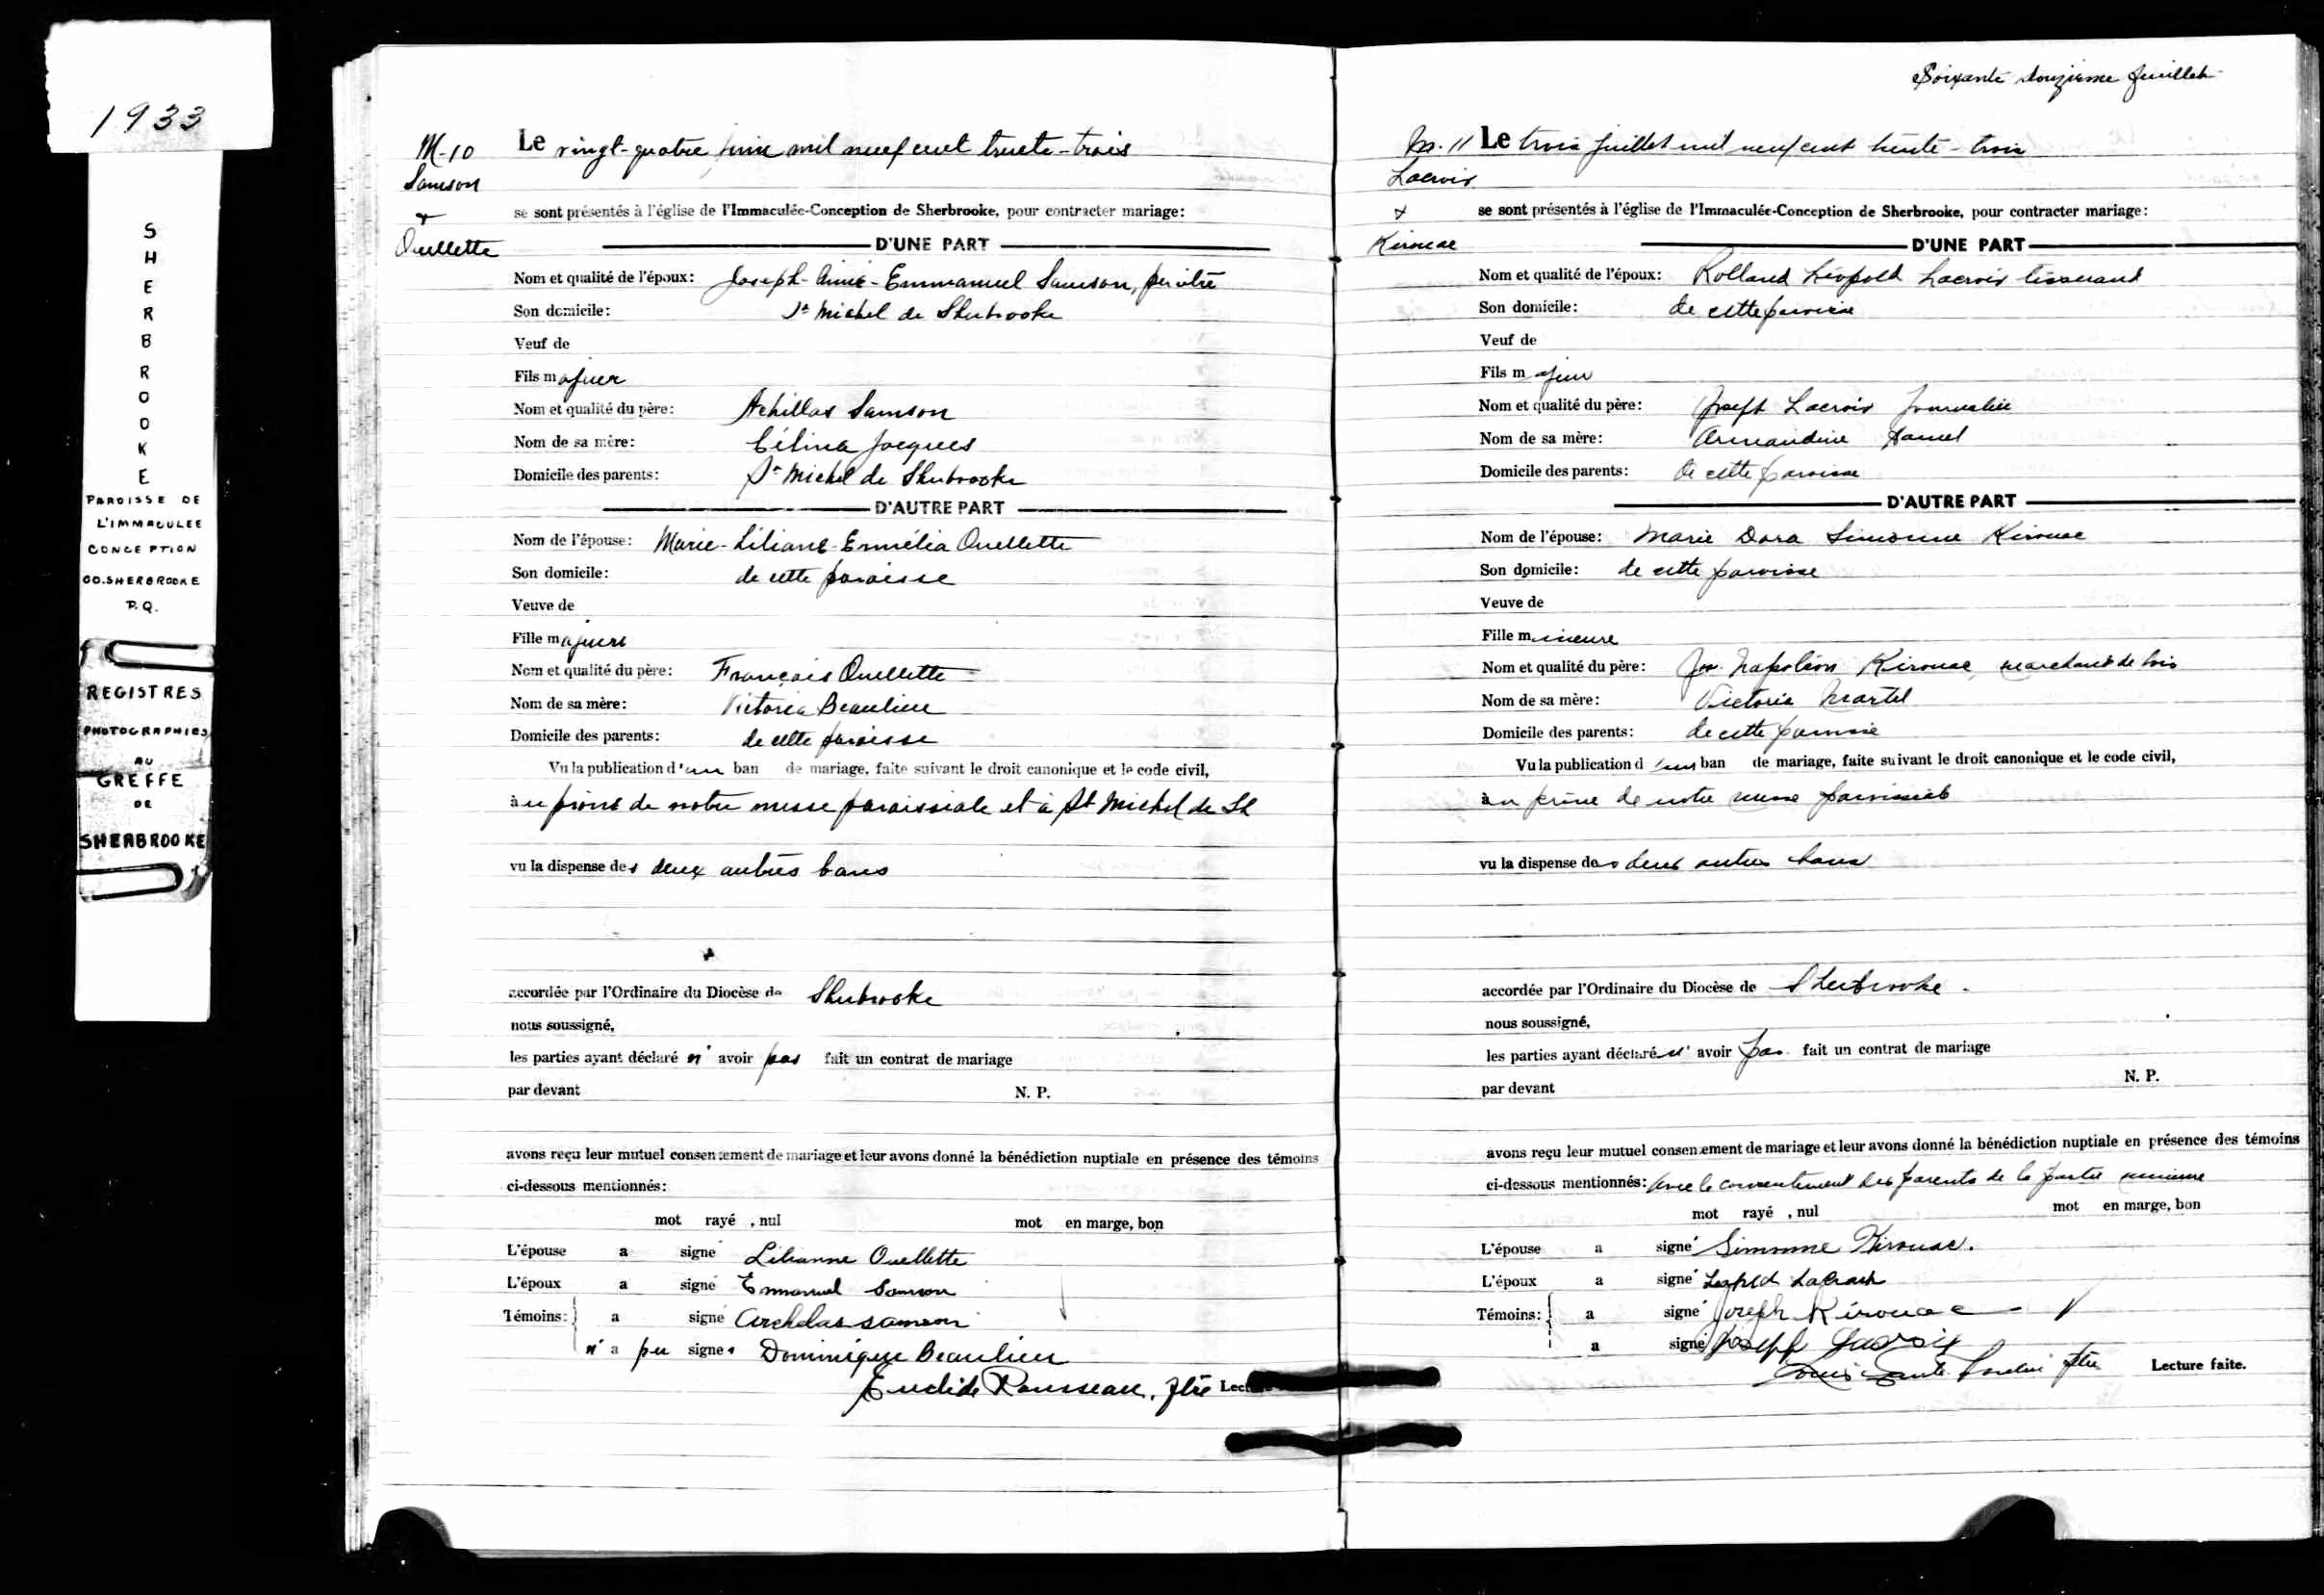 1933
SHERBROOKE
PAROISSE DE
L'IMMACULEE
CONCEPTION
CO. SHERBROOKE
P.Q.
REGISTRES
PHOTOGRAPHIES
AU
GREFFE
DE
SHERBROOKE
M-10
Samson
+
Ouellette
Le vingt-quatre juin mil neuf cent trente-trois
se sont présentés à l'église de l'Immaculée-Conception de Sherbrooke, pour contracter mariage:
D'UNE PART
Nom et qualité de l'époux: Joseph-Aimé-Emmanuel Samson, peintre
Son domicile: St Michel de Sherbrooke
Veuf de
Fils majeur
Nom et qualité du père: Achillas Samson
Nom de sa mère: Célina Jacques
Domicile des parents: St Michel de Sherbrooke
D'AUTRE PART
Nom de l'épouse: Marie-Liliane-Ermélia Ouellette
Son domicile: de cette paroisse
Veuve de
Fille majeure
Nom et qualité du père: François Ouellette
Nom de sa mère: Victoria Beaulieu
Domicile des parents: de cette paroisse
Vu la publication d'un ban de mariage, faite suivant le droit canonique et le code civil,
au prône de notre messe paroissiale et à St Michel de Sh
vu la dispense des deux autres bans
accordée par l'Ordinaire du Diocèse de Sherbrooke
nous soussigné,
les parties ayant déclaré n'avoir pas fait un contrat de mariage
par devant N. P.
avons reçu leur mutuel consentement de mariage et leur avons donné la bénédiction nuptiale en présence des témoins
ci-dessous mentionnés:
mot rayé , nul mot en marge, bon
L'épouse a signé Lilianne Ouellette
L'époux a signé Emmanuel Samson
Témoins: a signé Archelas Samson
n'a pu signer Dominique Beaulieu
Euclide Rousseau, ptre Lec
Soixante douzième feuillet
M. 11
Lacroix
+
Kirouac
Le trois juillet mil neuf cent trente-trois
se sont présentés à l'église de l'Immaculée-Conception de Sherbrooke, pour contracter mariage:
D'UNE PART
Nom et qualité de l'époux: Rolland Léopold Lacroix tisserand
Son domicile: de cette paroisse
Veuf de
Fils majeur
Nom et qualité du père: Joseph Lacroix journalier
Nom de sa mère: Armandine
Domicile des parents: de cette paroisse
D'AUTRE PART
Nom de l'épouse: Marie Dora Simonne Kirouac
Son domicile: de cette paroisse
Veuve de
Fille mineure
Nom et qualité du père: Jos. Napoléon Kirouac, marchand de bois
Nom de sa mère: Victoria Martel
Domicile des parents: de cette paroisse
Vu la publication d'un ban de mariage, faite suivant le droit canonique et le code civil,
au prône de notre messe paroissiale
vu la dispense des deux autres bans
accordée par l'Ordinaire du Diocèse de Sherbrooke.
nous soussigné,
les parties ayant déclaré n'avoir pas fait un contrat de mariage
par devant N. P.
avons reçu leur mutuel consentement de mariage et leur avons donné la bénédiction nuptiale en présence des témoins
ci-dessous mentionnés: avec le consentement des parents de la partie mineure
mot rayé , nul mot en marge, bon
L'épouse a signé Simonne Kirouac.
L'époux a signé Léopold
Témoins: a signé Joseph Kirouac
a signé Joseph
ptre Lecture faite.